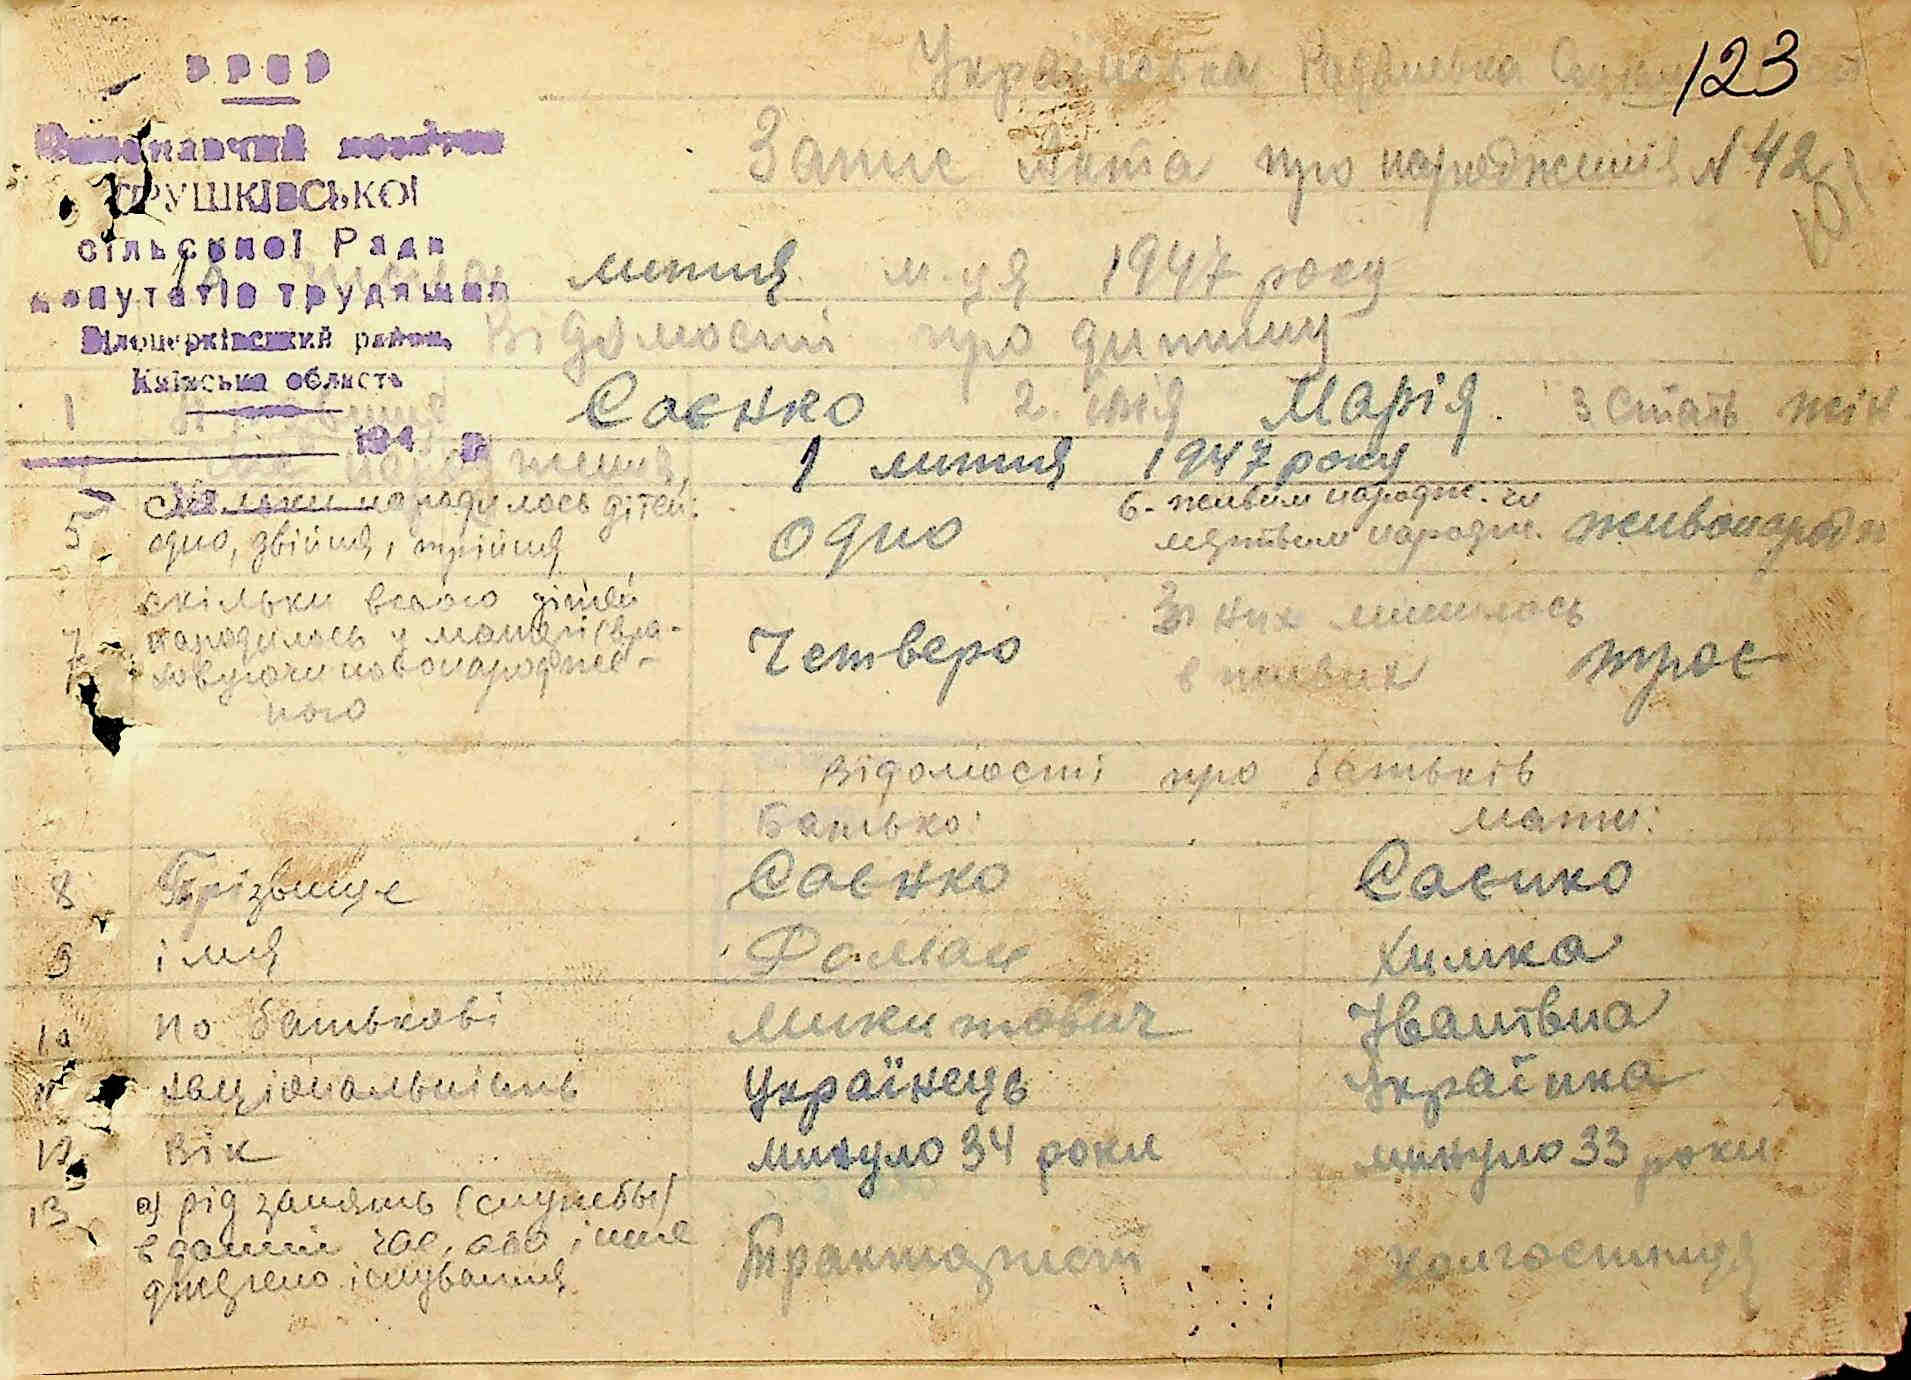 123
Українська Радянська
Запис Акта про народження N 42
УРСР
Виконавчий комітет
ТРУШКІВСЬКОЇ
сільської Ради
депутатів трудящих
Білоцерківський район,
Київська область
194 р.
липня м-ця 1947 року
Відомості про дитину
1 Саєнко 2. імя Марія 3 стать жін
народження 1 липня 1947 року
5 Скільки народилось дітей: одно, звійня, трійня одно 6. живим народж. чи мертвим народж. живонародж
7 скільки всього дітей народилось у матері (вра-
ховуючи новонароджен-
ного Четверо Зі них лишилось в живих троє
Відомості про батьків
Батько: мати:
8 Прізвище Саєнко Саєнко
9 імя Фоман Химка
10 по батькові Микитович Іванівна
11 національність Українець Українка
12 Вік минуло 34 роки минуло 33 роки
13 а) рід занять (служебы)
в даний час, або інше
джерело існування Трактарист колгоспниця